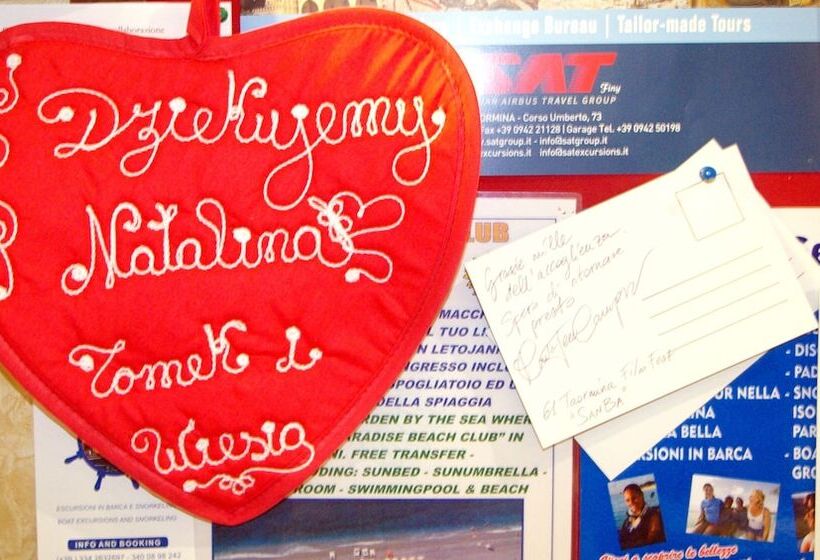 Exchange Bureau | Tailor-made Tours
SAT
Finy
AIRBUS TRAVEL GROUP
ORMINA - Corso Umberto, 73
Fax +39 0942 21128 | Garage Tel. +39 0942 50198
.satgroup.it - info@satgroup.it
excursions.it info@satexcursions.it
Dziękujemy
Natalina
Tomek i
Wiesia
Grazie mille
dell'accoglienza
Spero di
presto ritornare
61 Taormina Film Fest
"SANBA"
CLUB
MACCH
L TUO LI
N LETOJANN
NGRESSO INCLU
SPOGLIATOIO ED U
DELLA SPIAGGIA
RDEN BY THE SEA WHER
ARADISE BEACH CLUB" IN
NI. FREE TRANSFER -
UDING: SUNBED - SUNUMBRELLA -
ROOM - SWIMMINGPOOL & BEACH
ESCURSIONI IN BARCA E SNORKELING
BOAT EXCURSIONS AND SNORKELING
INFO AND BOOKING
- DIS
- PAD
UR NELLA
- SNO
INA
ISO
A BELLA
PAR
RSIONI IN BARCA
- BOA
GRO
a scoprire le bellezze